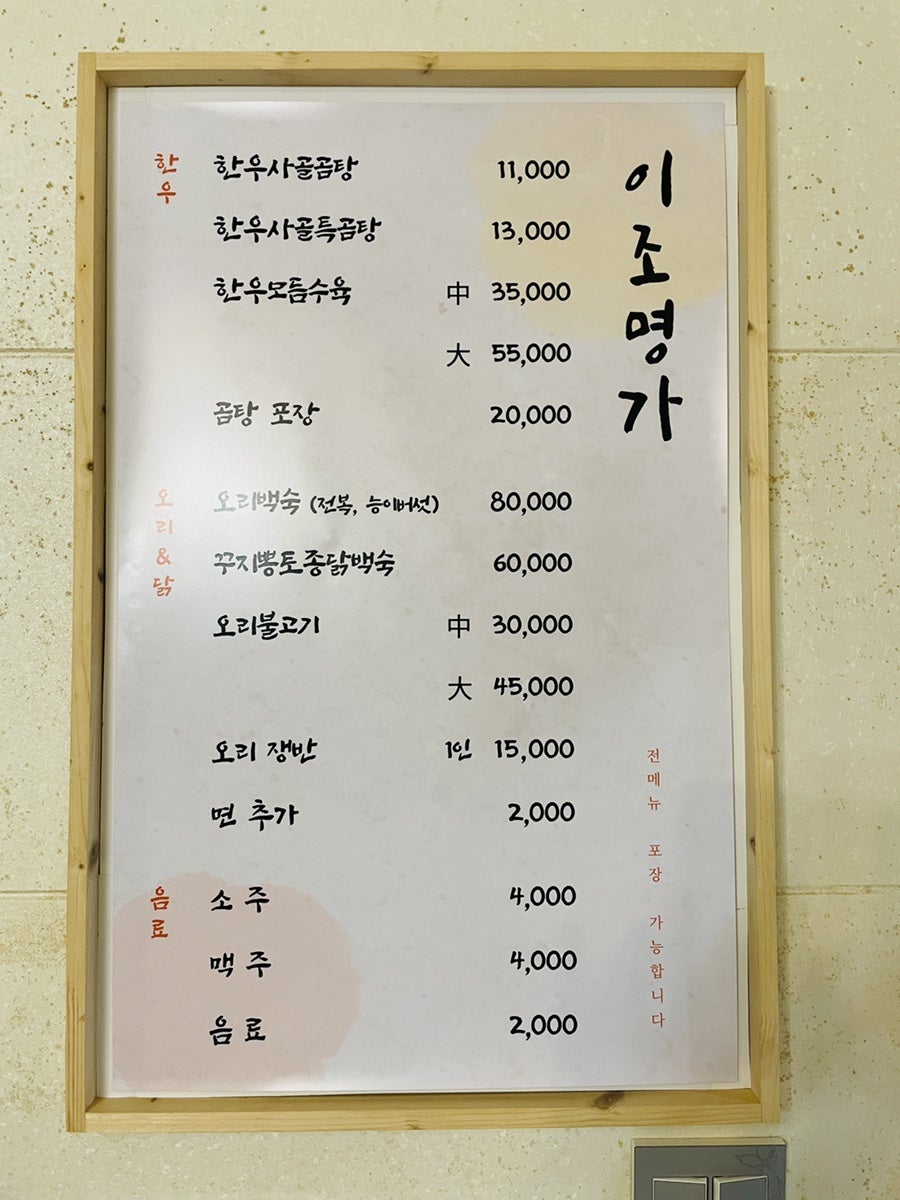 이조명가
한우
한우사골곰탕 11,000
한우사골특곰탕 13,000
한우모듬수육 中 35,000
大 55,000
곰탕 포장 20,000
오리&닭
오리백숙 (전복, 능이버섯) 80,000
꾸지뽕토종닭백숙 60,000
오리불고기 中 30,000
大 45,000
오리 쟁반 1인 15,000
면 추가 2,000
음료
소주 4,000
맥주 4,000
음료 2,000
전메뉴 포장 가능합니다